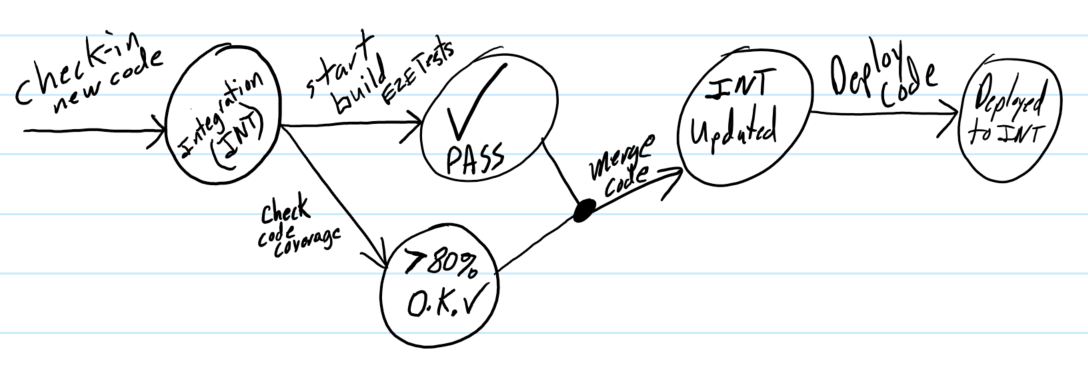 Check-in
new code
Integration
(INT)
start
build
E2E Tests
✓
PASS
Check
code
coverage
>80%
O.K.✓
merge
code
INT
Updated
Deploy
Code
Deployed
to INT